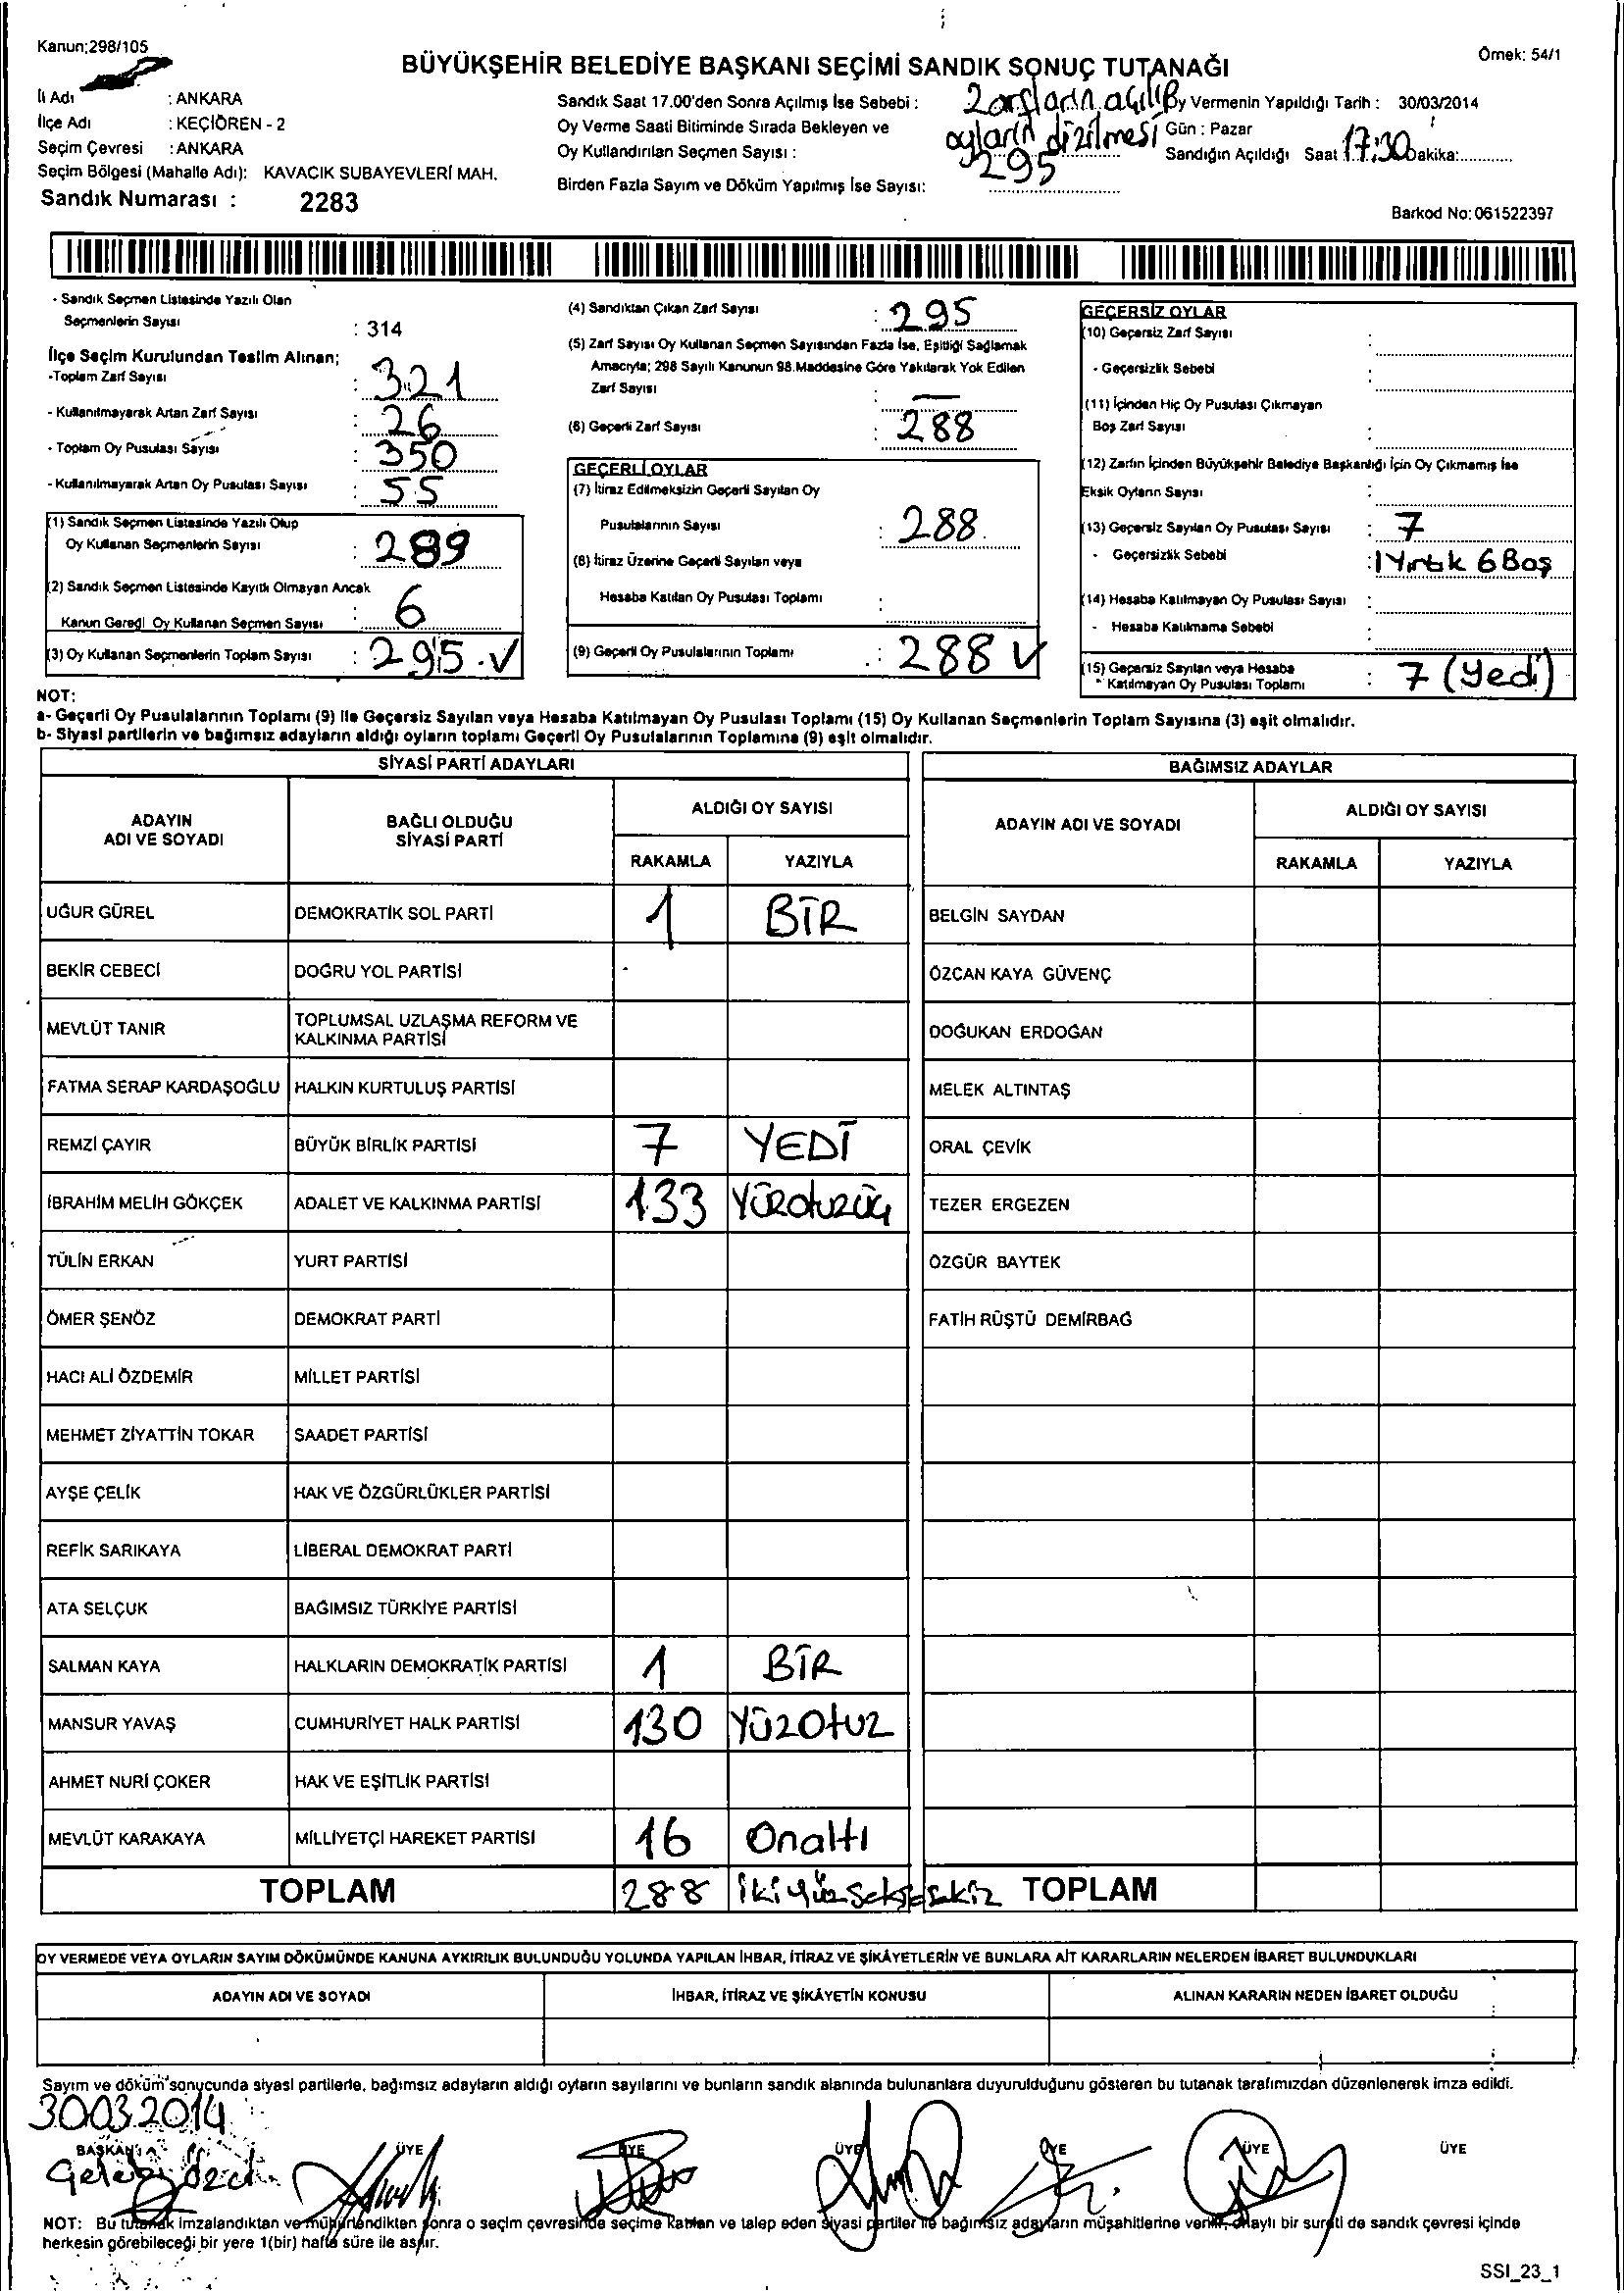 Kanun;298/105
Örnek: 54/1
BÜYÜKŞEHİR BELEDİYE BAŞKANI SEÇİMİ SANDIK SONUÇ TUTANAĞI
İl Adı : ANKARA
İlçe Adı : KEÇİÖREN - 2
Seçim Çevresi : ANKARA
Seçim Bölgesi (Mahalle Adı): KAVACIK SUBAYEVLERİ MAH.
Sandık Numarası : 2283
Sandık Saat 17.00'den Sonra Açılmış İse Sebebi : Zarfların açılıp
Oy Verme Saati Bitiminde Sırada Bekleyen ve oyların dizilmesi
Oy Kullandırılan Seçmen Sayısı : 295
Birden Fazla Sayım ve Döküm Yapılmış İse Sayısı:
Oy Vermenin Yapıldığı Tarih : 30/03/2014
Gün : Pazar
Sandığın Açıldığı Saat 17:30 Dakika:
Barkod No: 061522397
- Sandık Seçmen Listesinde Yazılı Olan
Seçmenlerin Sayısı : 314
İlçe Seçim Kurulundan Teslim Alınan;
-Toplam Zarf Sayısı : 321
- Kullanılmayarak Artan Zarf Sayısı : 26
- Toplam Oy Pusulası Sayısı : 350
- Kullanılmayarak Artan Oy Pusulası Sayısı : 55
(1) Sandık Seçmen Listesinde Yazılı Olup
Oy Kullanan Seçmenlerin Sayısı : 289
(2) Sandık Seçmen Listesinde Kayıtlı Olmayan Ancak
Kanun Gereği Oy Kullanan Seçmen Sayısı : 6
(3) Oy Kullanan Seçmenlerin Toplam Sayısı : 295
(4) Sandıktan Çıkan Zarf Sayısı : 295
(5) Zarf Sayısı Oy Kullanan Seçmen Sayısından Fazla İse, Eşitliği Sağlamak
Amacıyla; 298 Sayılı Kanunun 98.Maddesine Göre Yakılarak Yok Edilen
Zarf Sayısı : —
(6) Geçerli Zarf Sayısı : 288
GEÇERLİ OYLAR
(7) İtiraz Edilmeksizin Geçerli Sayılan Oy
Pusulalarının Sayısı : 288
(8) İtiraz Üzerine Geçerli Sayılan veya
Hesaba Katılan Oy Pusulası Toplamı :
(9) Geçerli Oy Pusulalarının Toplamı : 288
GEÇERSİZ OYLAR
(10) Geçersiz Zarf Sayısı :
- Geçersizlik Sebebi :
(11) İçinden Hiç Oy Pusulası Çıkmayan
Boş Zarf Sayısı :
(12) Zarfın İçinden Büyükşehir Belediye Başkanlığı İçin Oy Çıkmamış İse
Eksik Oyların Sayısı :
(13) Geçersiz Sayılan Oy Pusulası Sayısı : 7
- Geçersizlik Sebebi : 1 Yırtık 6 Boş
(14) Hesaba Katılmayan Oy Pusulası Sayısı :
- Hesaba Katılmama Sebebi :
(15) Geçersiz Sayılan veya Hesaba
Katılmayan Oy Pusulası Toplamı : 7 (Yedi)
NOT:
a- Geçerli Oy Pusulalarının Toplamı (9) ile Geçersiz Sayılan veya Hesaba Katılmayan Oy Pusulası Toplamı (15) Oy Kullanan Seçmenlerin Toplam Sayısına (3) eşit olmalıdır.
b- Siyasi partilerin ve bağımsız adayların aldığı oyların toplamı Geçerli Oy Pusulalarının Toplamına (9) eşit olmalıdır.
SİYASİ PARTİ ADAYLARI
BAĞIMSIZ ADAYLAR
ADAYIN ADI VE SOYADI
BAĞLI OLDUĞU SİYASİ PARTİ
ALDIĞI OY SAYISI
RAKAMLA YAZIYLA
ADAYIN ADI VE SOYADI
ALDIĞI OY SAYISI
RAKAMLA YAZIYLA
UĞUR GÜREL DEMOKRATİK SOL PARTİ 1 BİR BELGİN SAYDAN
BEKİR CEBECİ DOĞRU YOL PARTİSİ ÖZCAN KAYA GÜVENÇ
MEVLÜT TANIR TOPLUMSAL UZLAŞMA REFORM VE KALKINMA PARTİSİ DOĞUKAN ERDOĞAN
FATMA SERAP KARDAŞOĞLU HALKIN KURTULUŞ PARTİSİ MELEK ALTINTAŞ
REMZİ ÇAYIR BÜYÜK BİRLİK PARTİSİ 7 YEDİ ORAL ÇEVİK
İBRAHİM MELİH GÖKÇEK ADALET VE KALKINMA PARTİSİ 133 YÜZOTUZÜÇ TEZER ERGEZEN
TÜLİN ERKAN YURT PARTİSİ ÖZGÜR BAYTEK
ÖMER ŞENÖZ DEMOKRAT PARTİ FATİH RÜŞTÜ DEMİRBAĞ
HACI ALİ ÖZDEMİR MİLLET PARTİSİ
MEHMET ZİYATTİN TOKAR SAADET PARTİSİ
AYŞE ÇELİK HAK VE ÖZGÜRLÜKLER PARTİSİ
REFİK SARIKAYA LİBERAL DEMOKRAT PARTİ
ATA SELÇUK BAĞIMSIZ TÜRKİYE PARTİSİ
SALMAN KAYA HALKLARIN DEMOKRATİK PARTİSİ 1 BİR
MANSUR YAVAŞ CUMHURİYET HALK PARTİSİ 130 YÜZOTUZ
AHMET NURİ ÇOKER HAK VE EŞİTLİK PARTİSİ
MEVLÜT KARAKAYA MİLLİYETÇİ HAREKET PARTİSİ 16 Onaltı
TOPLAM 288 ikiyüzseksensekiz TOPLAM
OY VERMEDE VEYA OYLARIN SAYIM DÖKÜMÜNDE KANUNA AYKIRILIK BULUNDUĞU YOLUNDA YAPILAN İHBAR, İTİRAZ VE ŞİKÂYETLERİN VE BUNLARA AİT KARARLARIN NELERDEN İBARET BULUNDUKLARI
ADAYIN ADI VE SOYADI İHBAR, İTİRAZ VE ŞİKÂYETİN KONUSU ALINAN KARARIN NEDEN İBARET OLDUĞU
Sayım ve döküm sonucunda siyasi partilerle, bağımsız adayların aldığı oyların sayılarını ve bunların sandık alanında bulunanlara duyurulduğunu gösteren bu tutanak tarafımızdan düzenlenerek imza edildi.
30.03.2014
BAŞKAN ÜYE ÜYE ÜYE ÜYE ÜYE ÜYE
NOT: Bu tutanak imzalandıktan ve mühürlendikten sonra o seçim çevresinde seçime katılan ve talep eden siyasi partiler ile bağımsız adayların müşahitlerine verilir, onaylı bir sureti de sandık çevresi içinde
herkesin görebileceği bir yere 1(bir) hafta süre ile asılır.
SSI_23_1